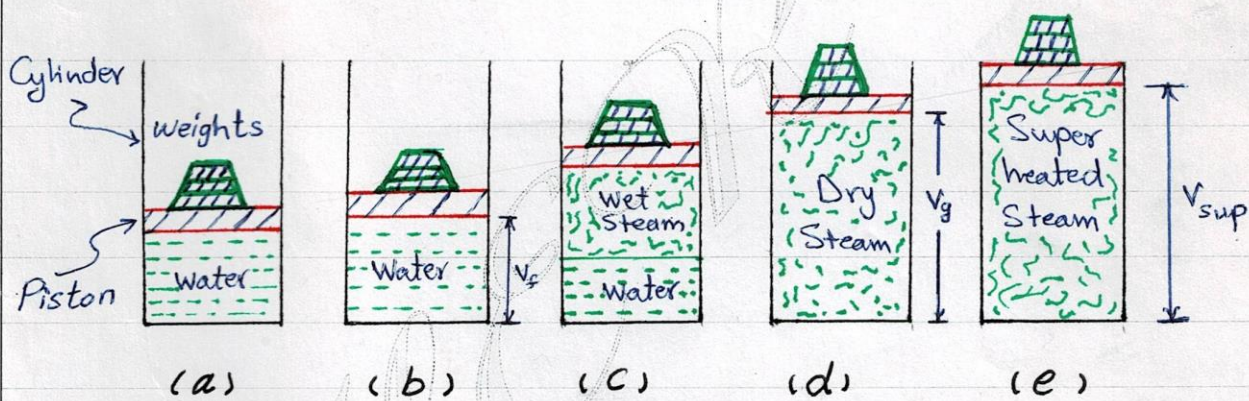 Cylinder
weights
Piston
Water
(a)
Water
Vf
(b)
Wet
Steam
Water
(c)
Dry
Steam
Vg
(d)
Super
heated
Steam
Vsup
(e)